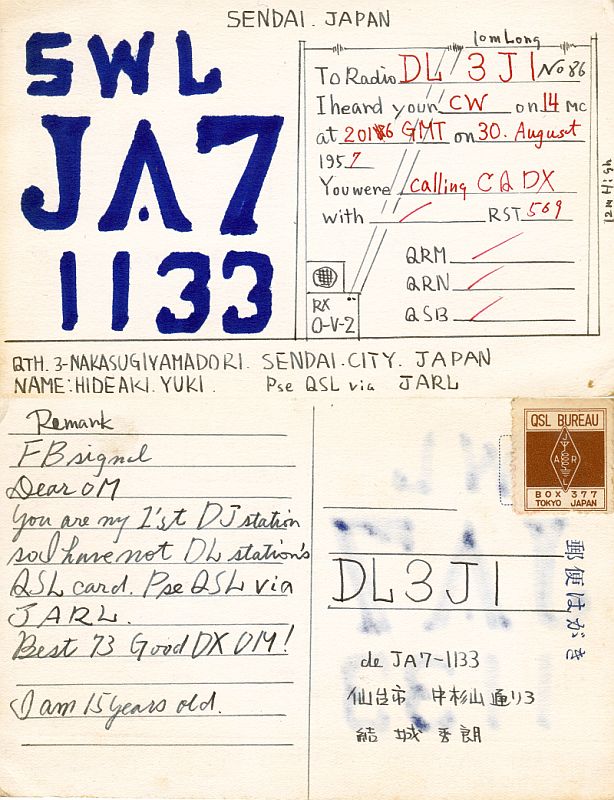 SENDAI. JAPAN
SWL
JA7
1133
10m Long
12m High
To Radio DL 3J1 No 86
I heard your CW on 14 MC
at 2016 GMT on 30. August
1957
You were calling CQ DX
with RST 569
QRM
QRN
QSB
RX
0-V-2
QTH. 3-NAKASUGIYAMADORI. SENDAI. CITY. JAPAN
NAME: HIDEAKI. YUKI. Pse QSL via JARL
Remark
FB signal
Dear OM
You are my 1'st DJ station
so I have not DL station's
QSL card. Pse QSL via
JARL.
Best 73 Good DX OM!
I am 15 years old.
QSL BUREAU
JARL
BOX 377
TOKYO JAPAN
郵便はがき
DL3J1
de JA7-1133
仙台市 中杉山通り3
結城 秀朗